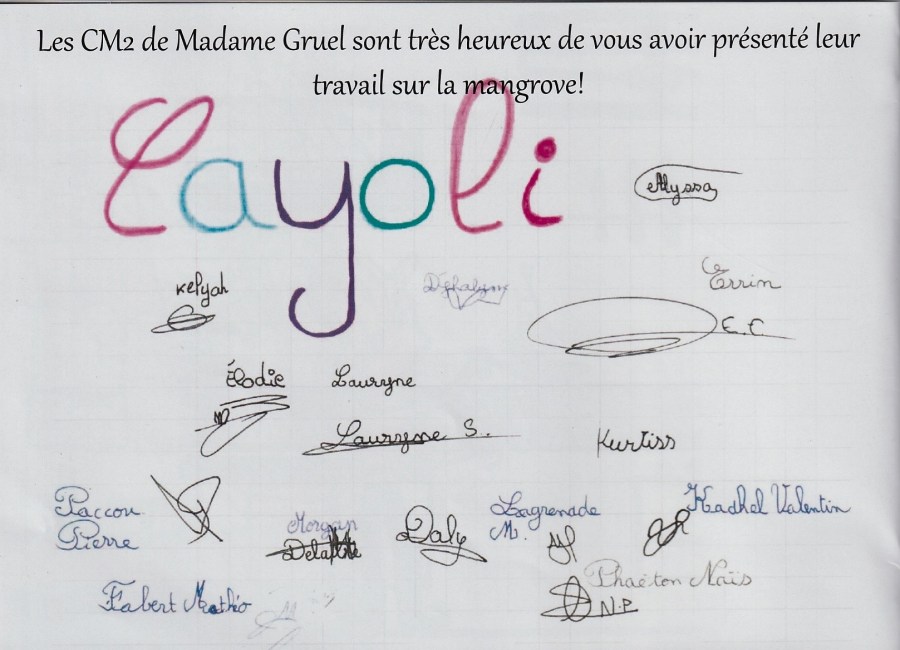 Les CM2 de Madame Gruel sont très heureux de vous avoir présenté leur
travail sur la mangrove!
Cayoli
Alyssa
Kelyah
Errin
E.C
Élodie
Lauryne
Lauryne S.
Kurtiss
Paccou
Pierre
Morgan
Daly
Lagrenade
M.
Kachel Valentin
Phaëton Naïs
N.P
Fabert Mathéo